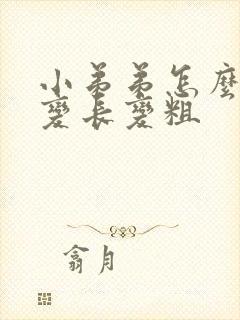 小弟弟怎麼
變長變粗
翕月